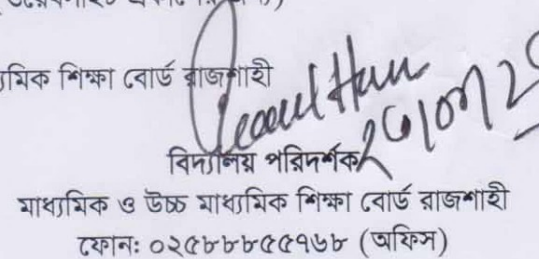 ্যমিক শিক্ষা বোর্ড রাজশাহী
বিদ্যালয় পরিদর্শক
মাধ্যমিক ও উচ্চ মাধ্যমিক শিক্ষা বোর্ড রাজশাহী
ফোন: ০২৫৮৮৮৫৫৭৬৮ (অফিস)